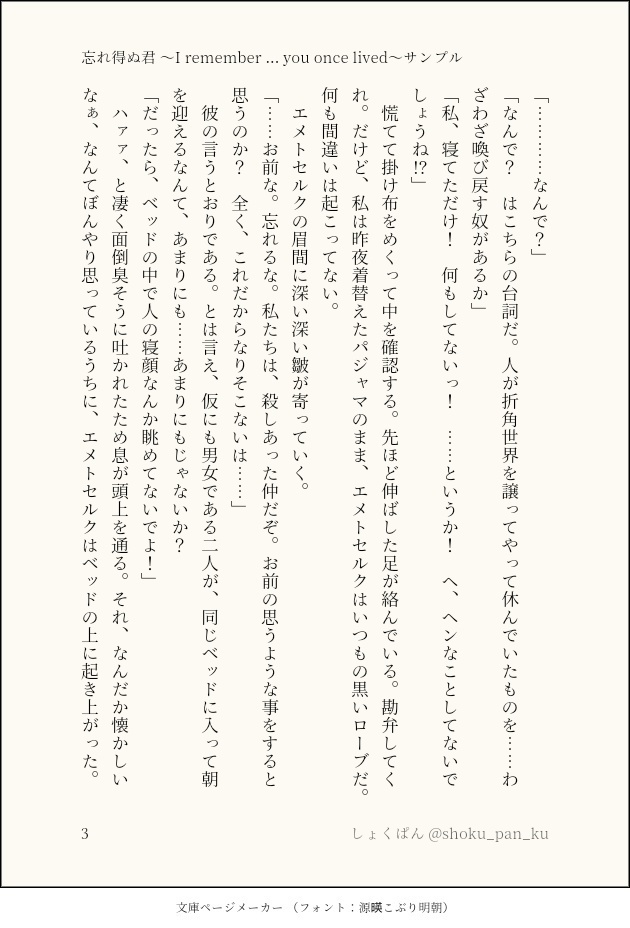 忘れ得ぬ君 〜I remember … you once lived〜サンプル
「…………なんで？」
「なんで？　はこちらの台詞だ。人が折角世界を譲ってやって休んでいたものを……わ
ざわざ喚び戻す奴があるか」
「私、寝てただけ！　何もしてないっ！　……というか！　へ、ヘンなことしてないで
しょうね!?」
　慌てて掛け布をめくって中を確認する。先ほど伸ばした足が絡んでいる。勘弁してく
れ。だけど、私は昨夜着替えたパジャマのまま、エメトセルクはいつもの黒いローブだ。
何も間違いは起こってない。
　エメトセルクの眉間に深い深い皺が寄っていく。
「……お前な。忘れるな。私たちは、殺しあった仲だぞ。お前の思うような事をすると
思うのか？　全く、これだからなりそこないは……」
　彼の言うとおりである。とは言え、仮にも男女である二人が、同じベッドに入って朝
を迎えるなんて、あまりにも……あまりにもじゃないか？
「だったら、ベッドの中で人の寝顔なんか眺めてないでよ！」
　ハァァ、と凄く面倒臭そうに吐かれたため息が頭上を通る。それ、なんだか懐かしい
なぁ、なんてぼんやり思っているうちに、エメトセルクはベッドの上に起き上がった。
3
しょくぱん @shoku_pan_ku
文庫ページメーカー （フォント：源暎こぶり明朝）